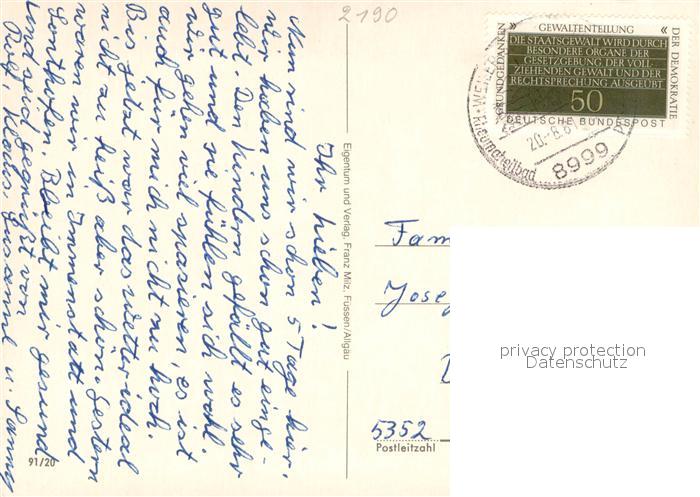 2190
Ihr Lieben!
Nun sind wir schon 5 Tage hier,
wir haben uns schon gut einge-
lebt. Den Kindern gefällt es sehr
gut und sie fühlen sich wohl.
Wir gehen viel spazieren, es ist
auch für mich nicht zu hoch.
Bis jetzt war das Wetter ideal
nicht zu heiß aber schön. Gestern
waren wir in Immenstatt und
Sonthofen. Bleibt mir gesund
und seid gegrüßt von
Klaus, Susanne u.
91/20
Eigentum und Verlag, Franz Milz, Füssen/Allgäu
GRUNDGEDANKEN
» GEWALTENTEILUNG «
DER DEMOKRATIE
DIE STAATSGEWALT WIRD DURCH
BESONDERE ORGANE DER
GESETZGEBUNG, DER VOLL-
ZIEHENDEN GEWALT UND DER
RECHTSPRECHUNG AUSGEÜBT
50
DEUTSCHE BUNDESPOST
20.-8.8
8999
Fam
Josef
5352
Postleitzahl
privacy protection
Datenschutz